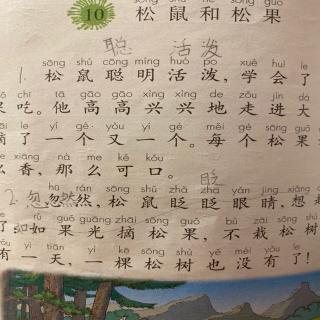 10 松鼠和松果
聪 活泼
sōng shǔ cōng míng huó po xué huì le
1. 松鼠聪明活泼,学会了
chī tā gāo gāo xìng xìng de zǒu jìn dà
吃。他高高兴兴地走进大
le yí gè yòu yí gè měi gè sōng guǒ
摘了一个又一个。每个松果
xiāng nà me kě kǒu
么香,那么可口。
眨
rán sōng shǔ zhǎ zhǎ yǎn jing xiǎng
2. 忽忽然,松鼠眨眨眼睛,想
rú guǒ guāng zhāi sōng guǒ bù zāi sōng shù
如果光摘松果,不栽松树
yǒu yì tiān yì kē sōng shù yě méi yǒu le
有一天,一棵松树也没有了!